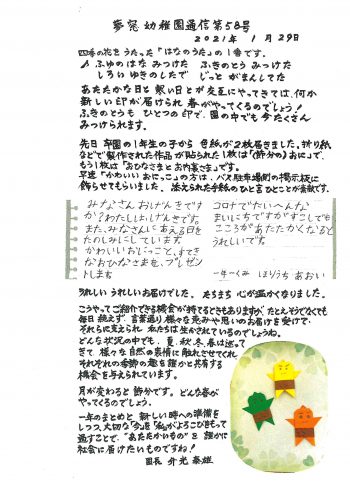 夢窓幼稚園通信第58号
2021年 1月29日
四季の花をうたった「はなのうた」の1番です。
♪ ふゆのはな みつけた ふきのとう みつけた
しろい ゆきのしたで じっと がまんしてた
あたたかな日と 寒い日とが 交互にやってきては、何か
新しい印が届けられ 春がやってくるのでしょう!
ふきのとうも ひとつの印で、園の中でも 今たくさん
みつけられます。
先日 卒園の1年生の子から 色紙が2枚届きました。折り紙
などで製作された作品が貼られた1枚は「節分のおに」で、
もう1枚は「おひなさまとお内裏さま」です。
早速「かわいい おにっこ」の方は、バス駐車場側の掲示板に
飾らせてもらいました。添えられた手紙のひと言ひとことが素敵です。
みなさんおげんきです
か?わたしは、げんきです。
また、みなさんにあえる日を
たのしみにしています
かわいいおにっこと、すてき
なおひなさまを、プレゼン
トします
コロナでたいへんな
まいにちですがすこしでも
こころがあたたかくなると
うれしいです。
一年一くみ ほりうち あおい
うれしい うれしいお届けでした。たちまち 心が温かくなりました。
こうやってご紹介できる機会が持てるときもありますが、たとえそうでなくても
毎日 絶えず、言葉通り 様々な恵みや思いのお届けを受けて、
それらに支えられ 私たちは生かされているのでしょうね。
どんな状況の中でも、夏、秋、冬、春は巡って
きて、様々な自然の表情に触れさせてくれ
それぞれの季節の趣を誰かと共有する
機会を与えられています。
月が変わると 節分です。どんな春が
やってくるのでしょう。
一年のまとめと 新しい時への準備を
しつつ、大切な「今」を「私」がよろこびをもって
過すことで、“あたたかいもの”を誰かに
社会に届けたいものですね!
園長 升光泰雄